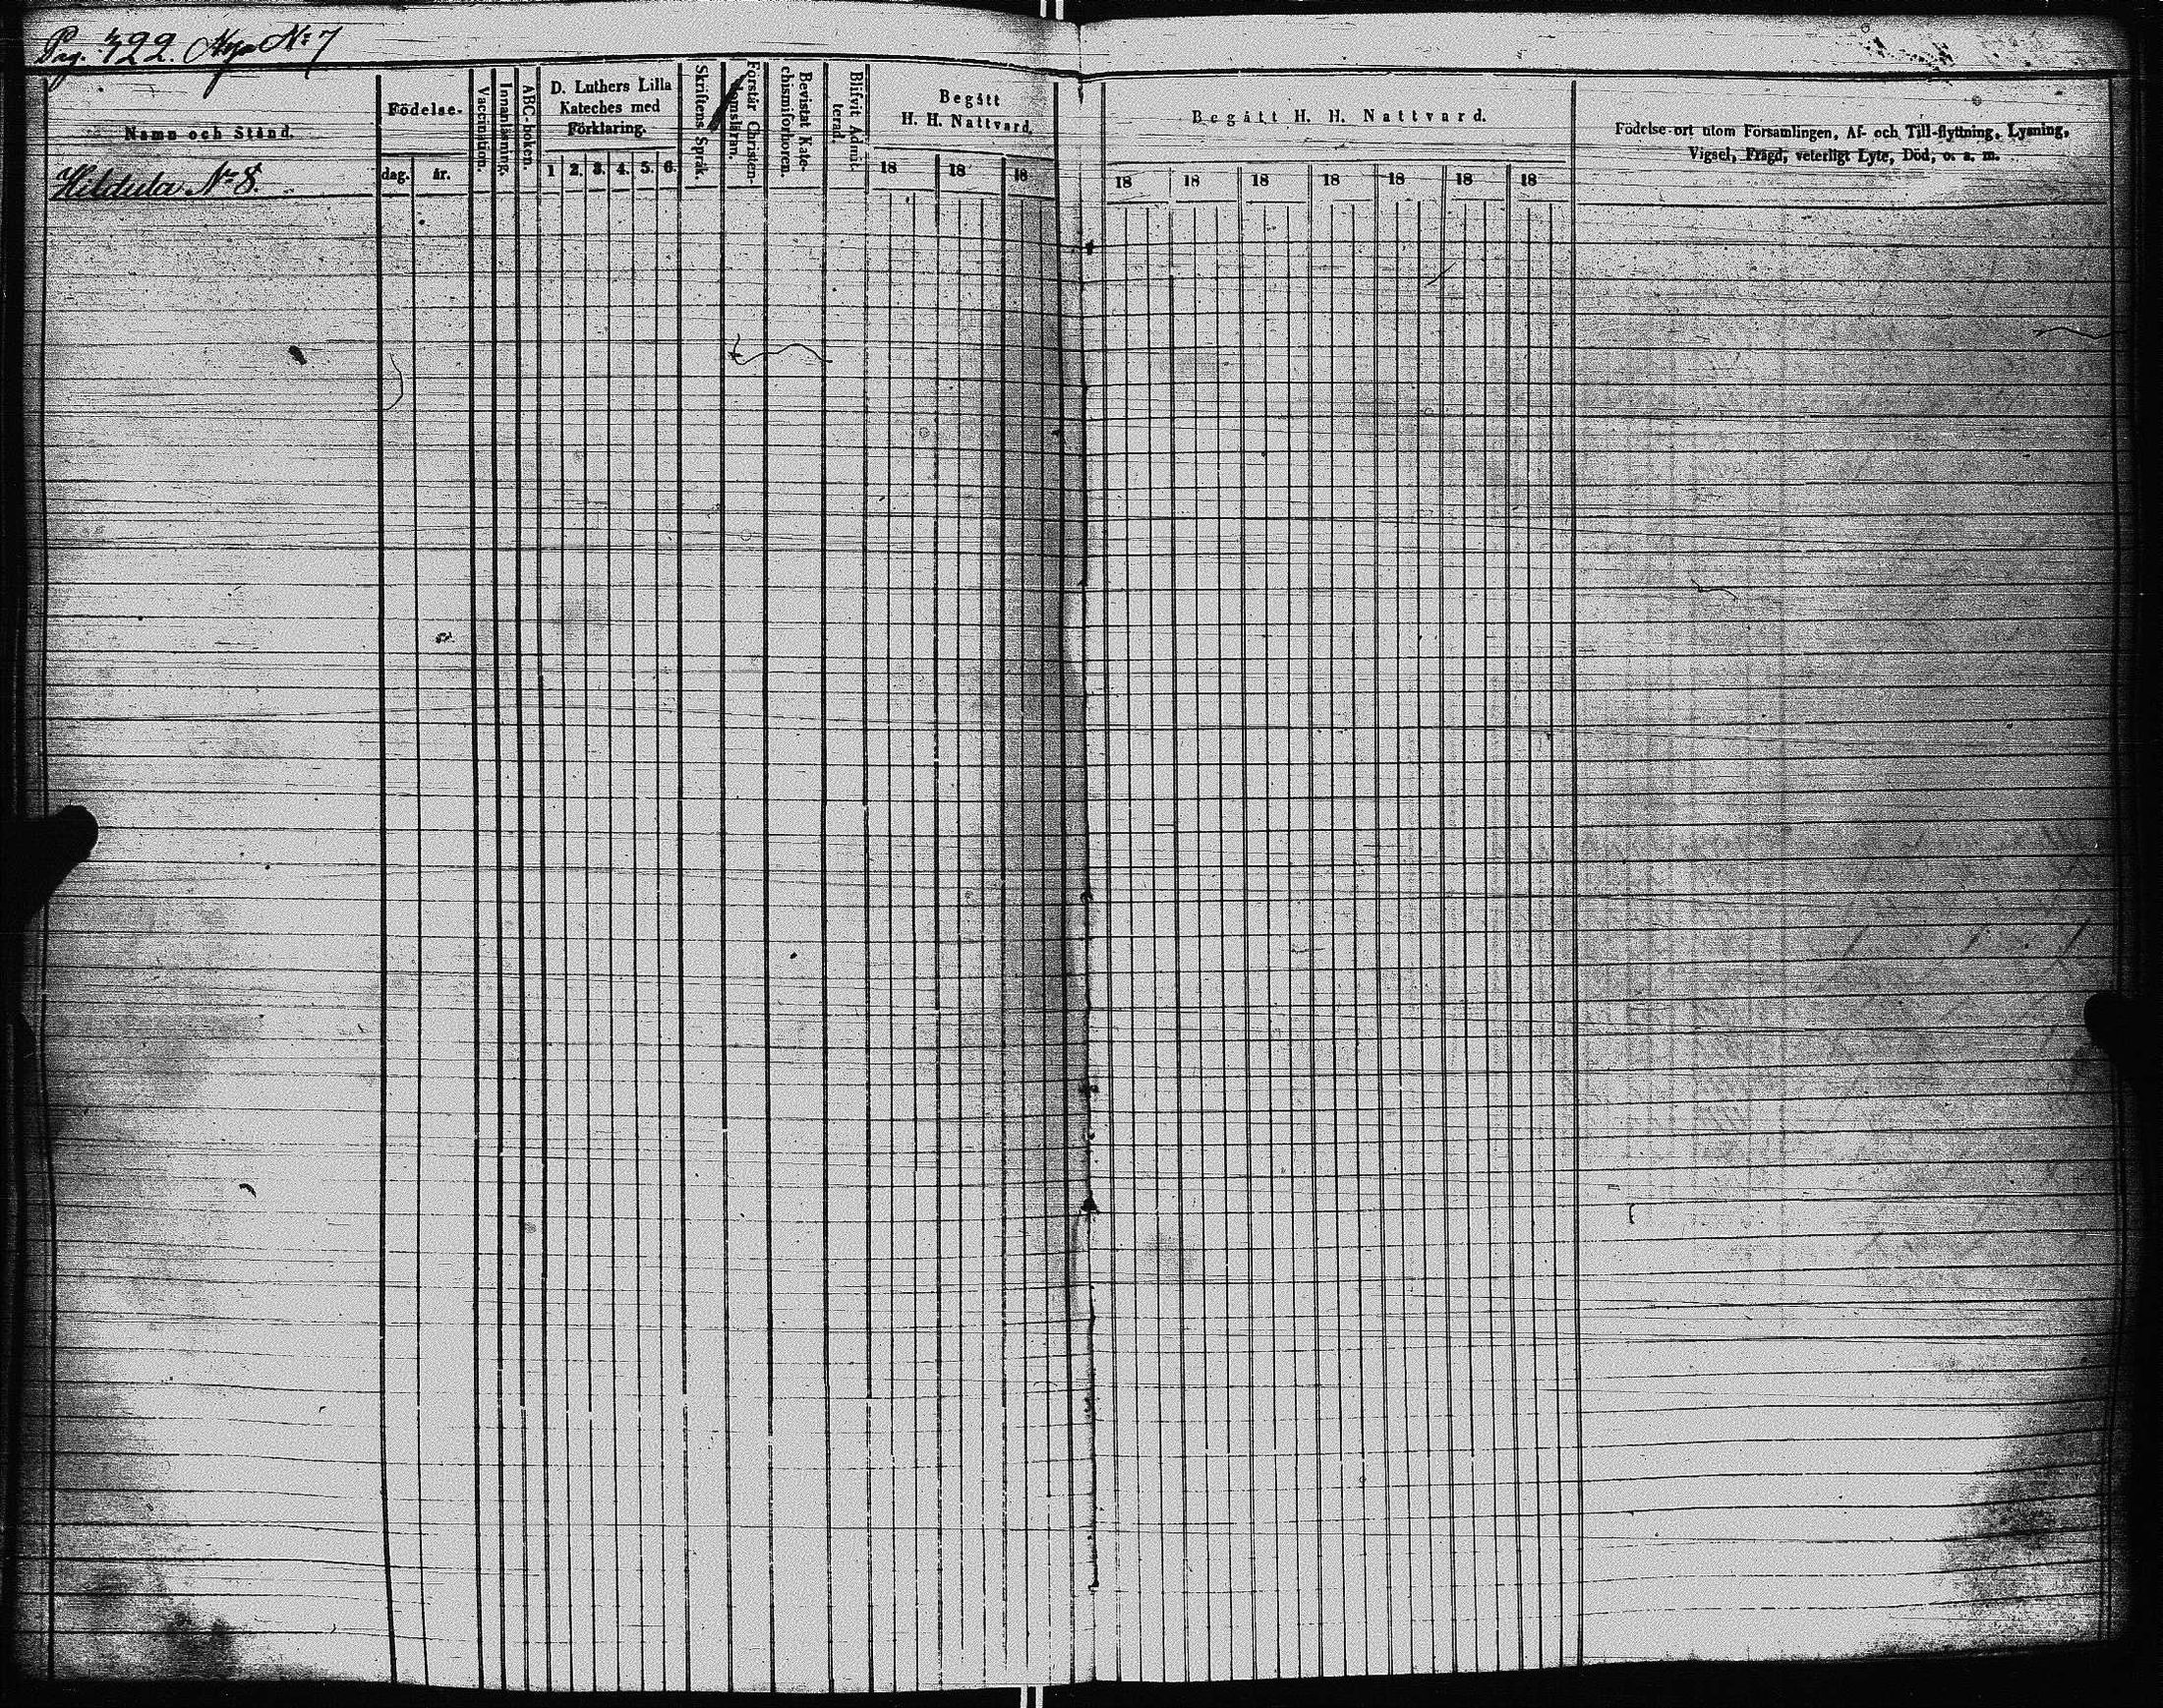 Pag. 322. Nya No 7
Namn och Stånd.
Hildula No 8.
Födelse-
dag.
år.
Vaccination.
Innanläsning.
ABC-boken.
D. Luthers Lilla
Kateches med
Förklaring.
1 2. 3. 4. 5. 6.
Skriftens Språk.
Förstår Christen-
domsläran.
Bevistat Kate-
chismiförhören.
Blifvit Admit-
terad.
Begått
H. H. Nattvard.
18 18 18
Begått H. H. Nattvard.
18 18 18 18 18 18 18
Födelse-ort utom Församlingen, Af- och Till-flyttning, Lysning,
Vigsel, Frägd, veterligt Lyte, Död, o. s. m.